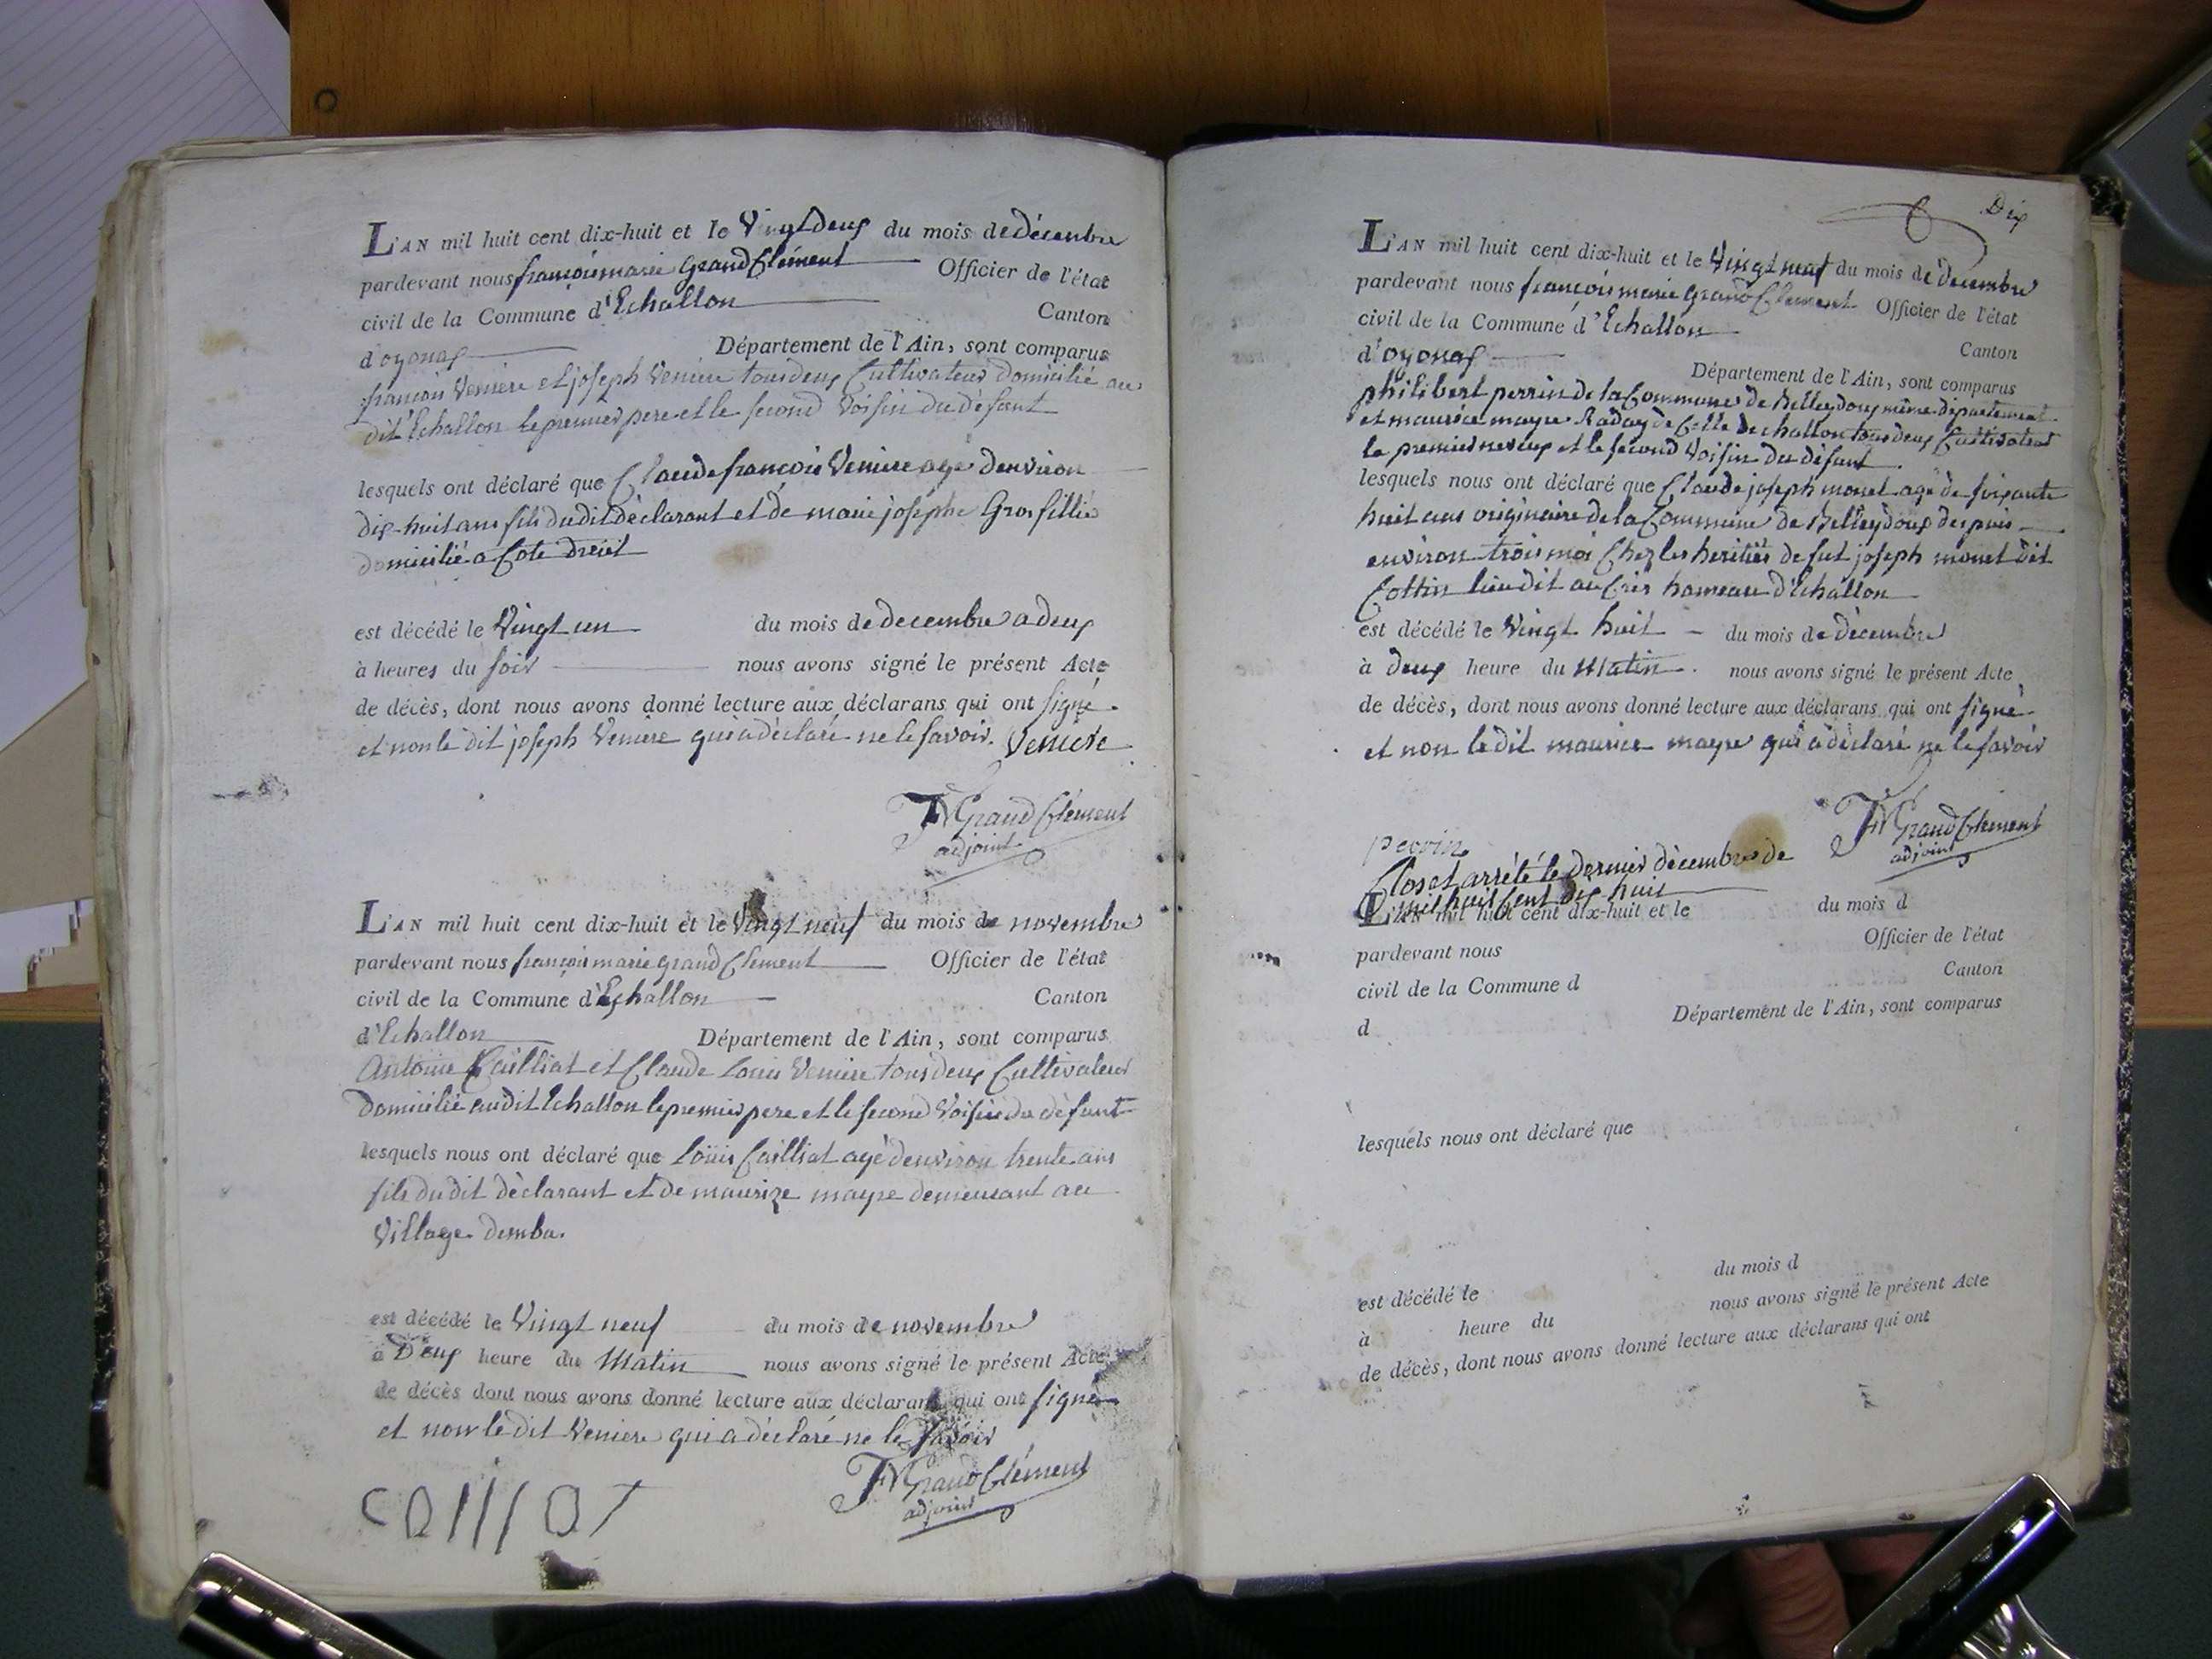 L'AN mil huit cent dix-huit et le Vingt Deux du mois de décembre
pardevant nous françois marie Grand Clément Officier de l'état
civil de la Commune d'Echallon Canton
d'oyonax Département de l'Ain, sont comparus
françois Veniere et joseph Veniere tous deux Cultivateurs domicilié au
dit Echallon le premier pere et le second Voisin du défunt
lesquels ont déclaré que Claude françois Veniere agé denviron
dix-huit ans fils du dit déclarant et de marie josephe Gros fillié
domicilié a Cote Dreiet
est décédé le Vingt un du mois de decembre a deux
à heures du soir nous avons signé le présent Acte
de décès, dont nous avons donné lecture aux déclarans qui ont signé
et non le dit joseph Veniere qui a déclaré ne le savoir. Veniere
FM Grand Clément
adjoint
L'AN mil huit cent dix-huit et le Vingt neuf du mois de novembre
pardevant nous françois marie grand Clement Officier de l'état
civil de la Commune d'Echallon Canton
d'Echallon Département de l'Ain, sont comparus
Antoine Cailliat et Claude Louis Veniere tous deux Cultivateurs
Domicilié au dit Echallon le premier pere et le second Voisin du défunt
lesquels nous ont déclaré que Louis Cailliat agé d'environ trente ans
fils du dit déclarant et de maurize mayre demeurant au
Village demba.
est décédé le Vingt neuf du mois de novembre
à Deux heure du Matin nous avons signé le présent Acte
de décès dont nous avons donné lecture aux déclarans qui ont signé
et non le dit Veniere qui a déclaré ne le savoir
FM Grand Clément
adjoint
Dix
L'AN mil huit cent dix-huit et le Vingt neuf du mois de decembre
pardevant nous françois marie Grand Clement Officier de l'état
civil de la Commune d'Echallon Canton
d'oyonax Département de l'Ain, sont comparus
philibert perrin de la Commune de Belleydoux même departement
et maurice mayre Raday de Celle dechallon tous deux Cultivateur
le premier neveux et le second Voisin du défunt
lesquels nous ont déclaré que Claude joseph monet agé de soixante
huit ans originaire de la Commune de Belleydoux depuis
environ trois moi Chez les heritiers de fut joseph monet dit
Cottin lieu dit au Crès hameau d'Echallon
est décédé le Vingt huit du mois de décembre
à Deux heure du Matin nous avons signé le présent Acte
de décès, dont nous avons donné lecture aux déclarans qui ont signé
et non le dit maurice mayre qui a déclaré ne le savoir
FM Grand Clement
adjoint
perrin
Clos et arrété le dernier décembre de
mil huit Cent dix huit
L'AN mil huit cent dix-huit et le du mois d
pardevant nous Officier de l'état
civil de la Commune d Canton
d Département de l'Ain, sont comparus
lesquels nous ont déclaré que
est décédé le du mois d
à heure du nous avons signé le présent Acte
de décès, dont nous avons donné lecture aux déclarans qui ont